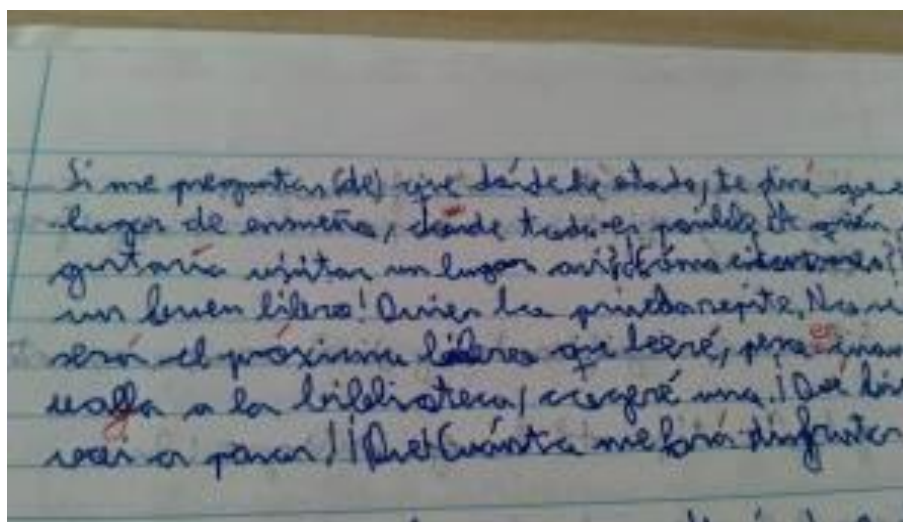 Si me preguntas (de) que dónde he estado, te diré que e
lugar de ensueño, dónde todo es posible. ¿A quién
gustaría visitar un lugar así? ¿Cómo
un buen libro! Quien lo prueba repite. No
será el próximo libro que leeré, pero
vaya a la biblioteca, cogeré uno. ¡Qué
voy a pasar! ¡ Cuánto me hará disfrutar